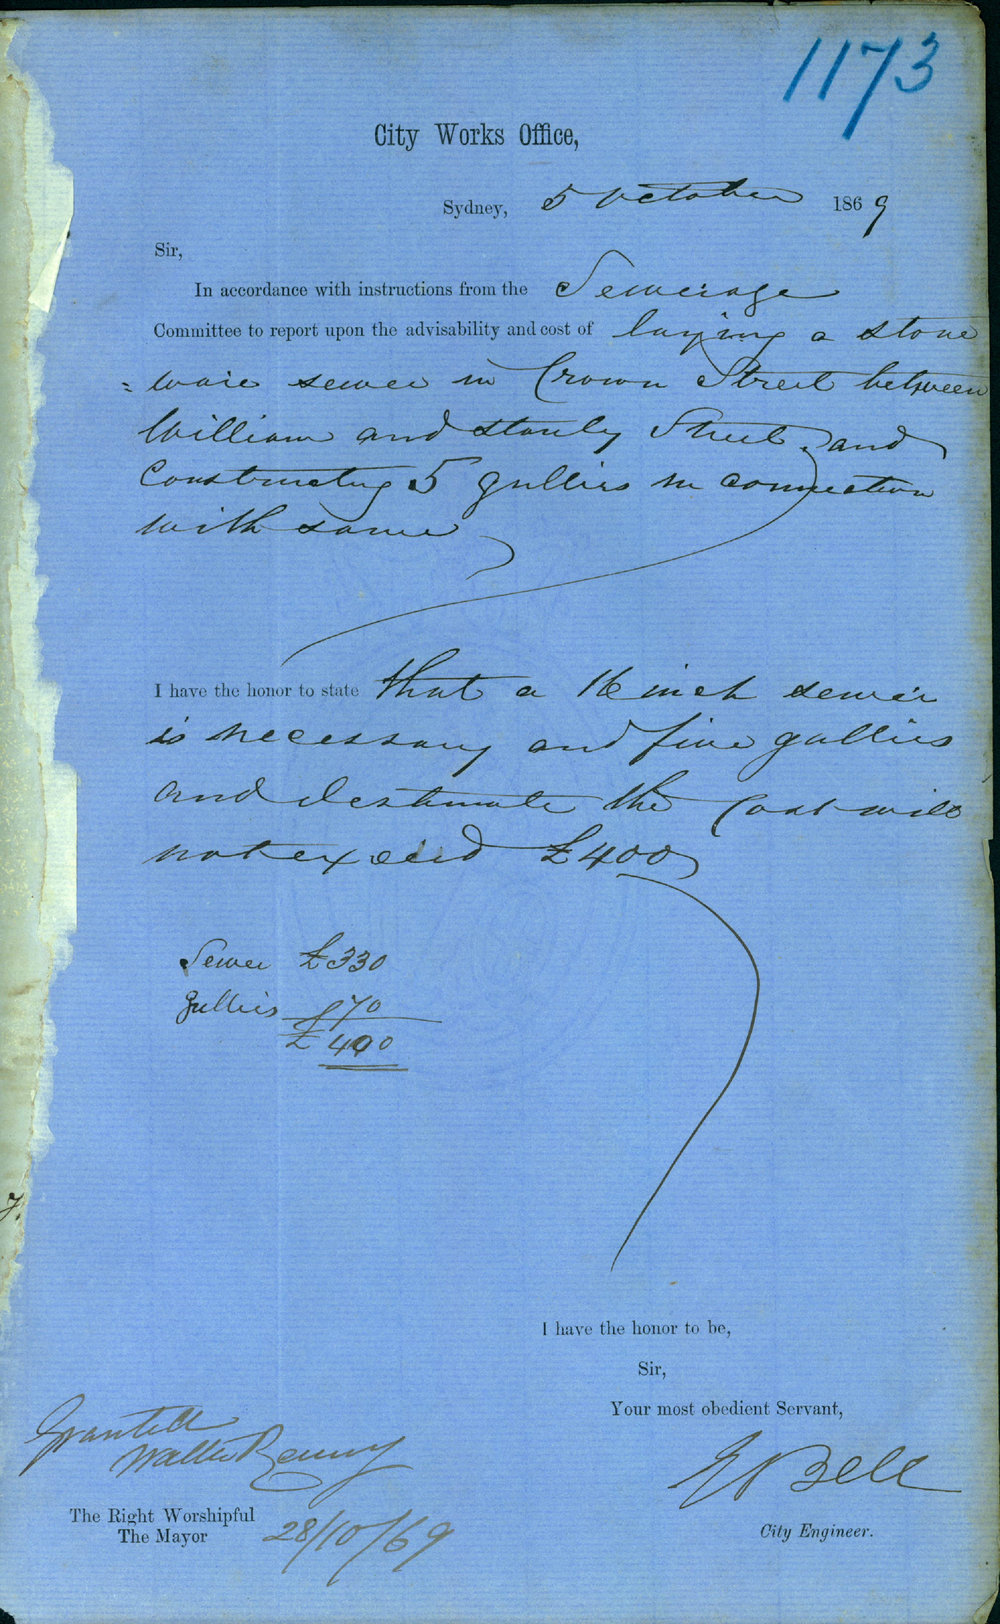 1173
City Works Office,
Sydney, 5 October 1869
Sir,
In accordance with instructions from the Sewerage
Committee to report upon the advisability and cost of laying a stone
= ware sewer in Crown Street between
William and Stanly Street and
Constructing 5 gullies in connection
with same
I have the honor to state that a 16 inch sewer
is necessary and five gullies
and I estimate the Cost will
not exceed £400
Sewer £330
gullies 70
£400
7.
I have the honor to be,
Sir,
Your most obedient Servant,
Granted
Walter Renny
Bell
The Right Worshipful
The Mayor 28/10/69
City Engineer.